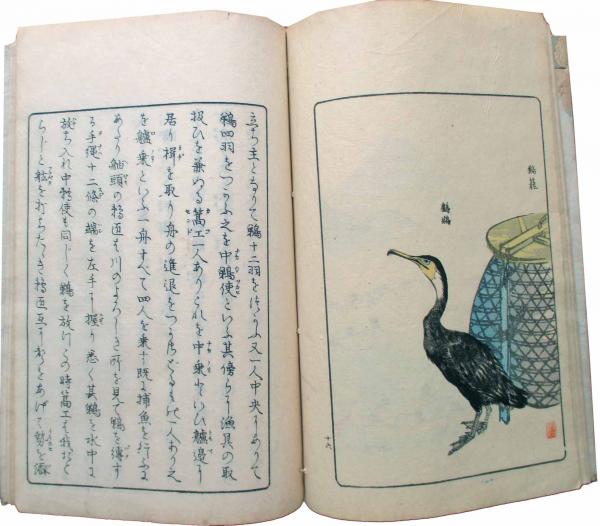 鵜籠
十六
立ち主となりて鵜十二羽をつかふ又一人中央にありて
鵜四羽をつかふ之を中鵜使といふ其傍に漁具の取
扱ひを兼ぬる篙工一人ありこれを中乗といひ艫邊に
居り楫を取り舟の進退をつかさどるもの一人あり之
を艫乗といふ一舟すべて四人を乗す既に捕魚を行ふに
あたり舳頭の鵜匠は川のよろしき所を見て鵜を縛す
る手縄十二條の端を左手に握り悉く其鵜を水中に
放ち入れ中鵜使も同じく鵜を放つこの時篙工も我おと
らじと舷を打ちたゝき鵜匠互にこゑをあげて勢を添